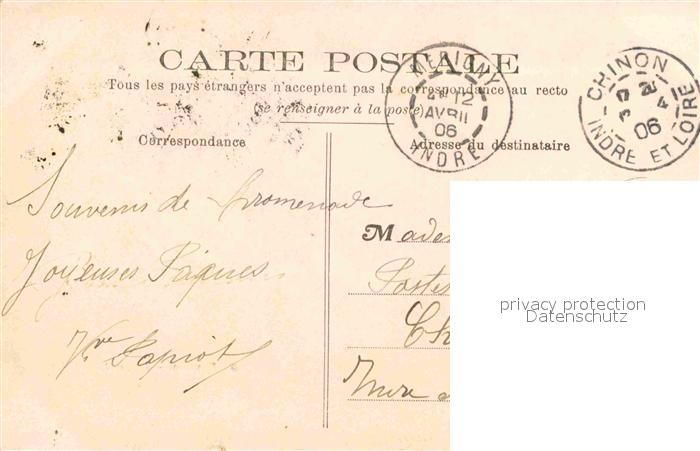 CARTE POSTALE
Tous les pays étrangers n'acceptent pas la correspondance au recto
(se renseigner à la poste)
Correspondance
Adresse du destinataire
12
AVRIL
06
INDRE
CHINON
06
INDRE ET LOIRE
Souvenir de promenade
Joyeuses Pâques
Vve Papiot
Made
Postes
Ch
Indre
privacy protection
Datenschutz